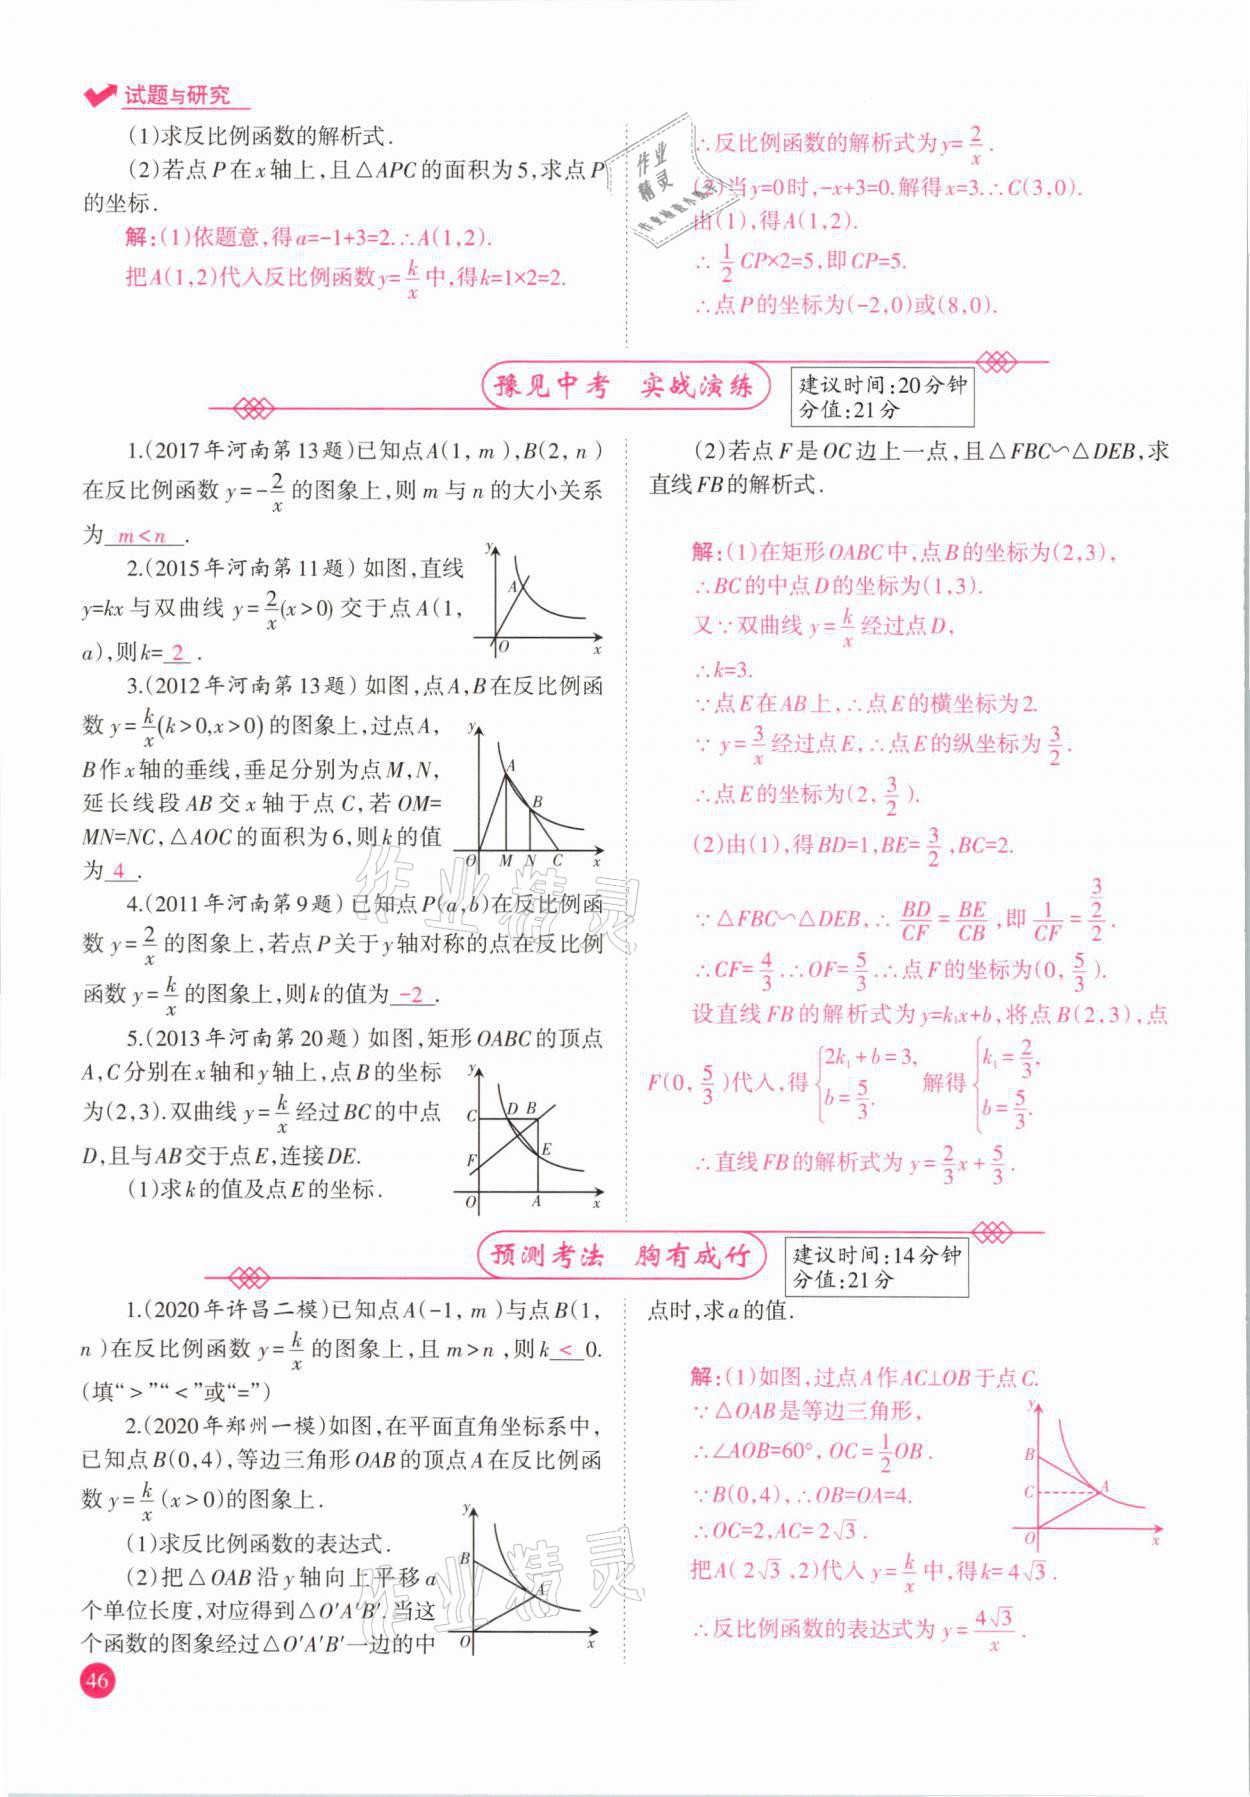 试题与研究
(1)求反比例函数的解析式.
(2)若点P在x轴上,且△APC的面积为5,求点P
的坐标.
解:(1)依题意,得a=-1+3=2.∴A(1,2).
把A(1,2)代入反比例函数y=k/x中,得k=1×2=2.
∴反比例函数的解析式为y=2/x.
(2)当y=0时,-x+3=0.解得x=3.∴C(3,0).
由(1),得A(1,2).
∴1/2 CP×2=5,即CP=5.
∴点P的坐标为(-2,0)或(8,0).
豫见中考 实战演练
建议时间:20分钟
分值:21分
1.(2017年河南第13题)已知点A(1,m),B(2,n)
在反比例函数y=-2/x的图象上,则m与n的大小关系
为 m<n .
2.(2015年河南第11题)如图,直线
y=kx与双曲线y=2/x(x>0)交于点A(1,
a),则k= 2 .
y
A
O
x
3.(2012年河南第13题)如图,点A,B在反比例函
数y=k/x(k>0,x>0)的图象上,过点A,
B作x轴的垂线,垂足分别为点M,N,
延长线段AB交x轴于点C,若OM=
MN=NC,△AOC的面积为6,则k的值
为 4 .
y
A
B
O M N C x
4.(2011年河南第9题)已知点P(a,b)在反比例函
数y=2/x的图象上,若点P关于y轴对称的点在反比例
函数y=k/x的图象上,则k的值为 -2 .
5.(2013年河南第20题)如图,矩形OABC的顶点
A,C分别在x轴和y轴上,点B的坐标
为(2,3).双曲线y=k/x经过BC的中点
D,且与AB交于点E,连接DE.
(1)求k的值及点E的坐标.
y
C D B
E
F
O A x
(2)若点F是OC边上一点,且△FBC∽△DEB,求
直线FB的解析式.
解:(1)在矩形OABC中,点B的坐标为(2,3),
∴BC的中点D的坐标为(1,3).
又∵双曲线y=k/x经过点D,
∴k=3.
∵点E在AB上,∴点E的横坐标为2.
∵y=3/x经过点E,∴点E的纵坐标为3/2.
∴点E的坐标为(2,3/2).
(2)由(1),得BD=1,BE=3/2,BC=2.
∵△FBC∽△DEB,∴BD/CF=BE/CB,即1/CF=(3/2)/2.
∴CF=4/3.∴OF=5/3.∴点F的坐标为(0,5/3).
设直线FB的解析式为y=k₁x+b,将点B(2,3),点
F(0,5/3)代入,得{2k₁+b=3, b=5/3. 解得{k₁=2/3, b=5/3.
∴直线FB的解析式为y=2/3x+5/3.
预测考法 胸有成竹
建议时间:14分钟
分值:21分
1.(2020年许昌二模)已知点A(-1,m)与点B(1,
n)在反比例函数y=k/x的图象上,且m>n,则k < 0.
(填“>”“<”或“=”)
2.(2020年郑州一模)如图,在平面直角坐标系中,
已知点B(0,4),等边三角形OAB的顶点A在反比例函
数y=k/x(x>0)的图象上.
(1)求反比例函数的表达式.
(2)把△OAB沿y轴向上平移a
个单位长度,对应得到△O′A′B′.当这
个函数的图象经过△O′A′B′一边的中
y
B
A
O
x
点时,求a的值.
解:(1)如图,过点A作AC⊥OB于点C.
∵△OAB是等边三角形,
∴∠AOB=60°,OC=1/2OB.
∵B(0,4),∴OB=OA=4.
∴OC=2,AC=2√3.
把A(2√3,2)代入y=k/x中,得k=4√3.
∴反比例函数的表达式为y=4√3/x.
y
B
C
A
O
x
46
作业精灵
作业精灵
作业精灵